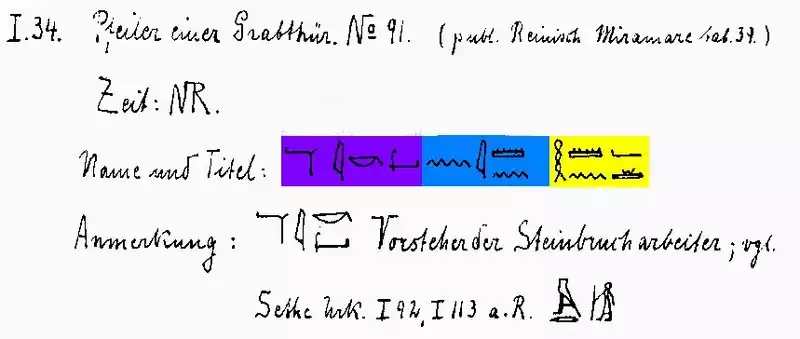 I.34. Pfeiler einer Grabthür. No 91. (publ. Reinisch Miramare tab. 37.)
Zeit: NR.
Name und Titel:
Anmerkung: Vorsteher der Steinbrucharbeiter; vgl.
Sethe Urk. I 92, I 113 a.R.